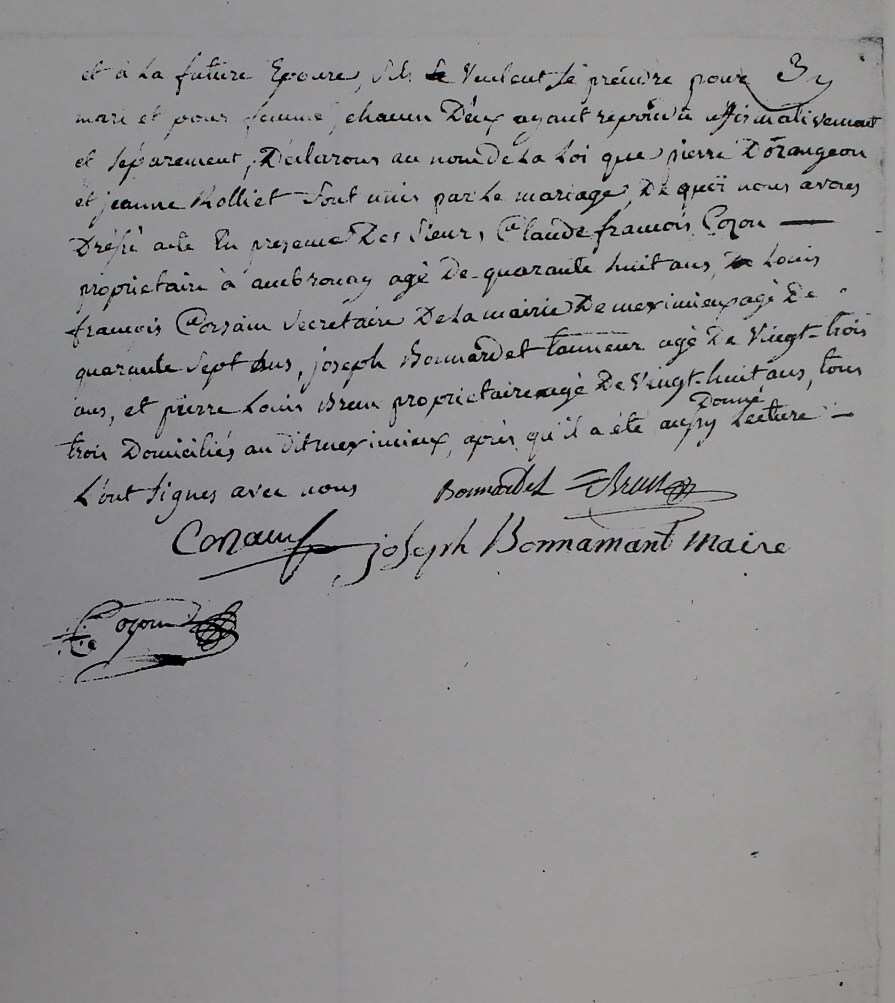 et à la future Epouse, s'ils le veulent se prendre pour
mari et pour femme, chacun D'eux ayant repondu affirmativement
et séparement, Declarons au nom de la Loi que pierre Dorangeon
et jeanne Rolliet sont unis par le mariage, De quoi nous avons
Dressé acte En presence Des Sieurs Claude françois Cozon
proprietaire à ambronay agé De quarante huit ans, Louis
françois Corsain Secretaire De la mairie De meximieux agé De
quarante sept ans, joseph Bonnardet tanneur agé De vingt-trois
ans, et pierre Louis Brun proprietaire agé De Vingt-huit ans, tous
trois Domiciliés au dit meximieux, après qu'il a été aussy Donné Lecture
L'ont signés avec nous Bonnardet Brun
joseph Bonnamant Maire
Cozon